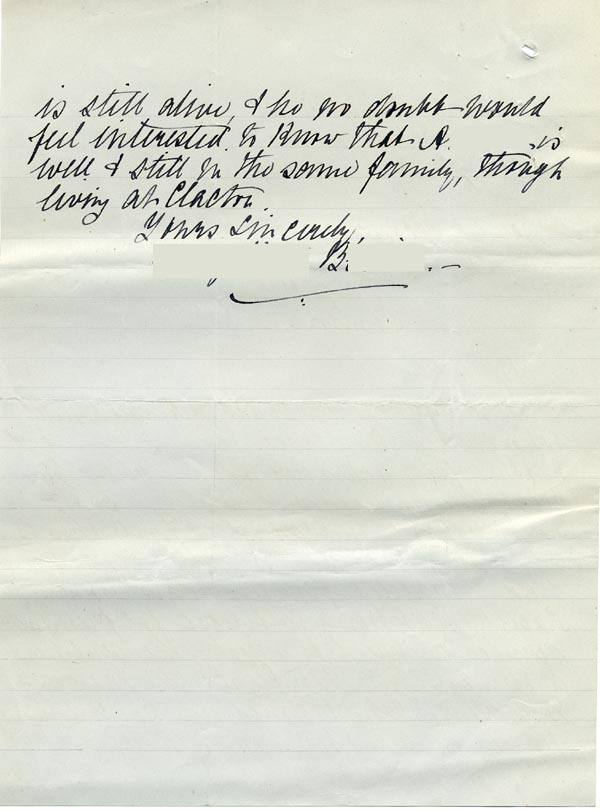 is still alive, & he no doubt would
feel interested to know that A. is
well & still in the same family, though
living at Clacton.
Yours Sincerely,
B.